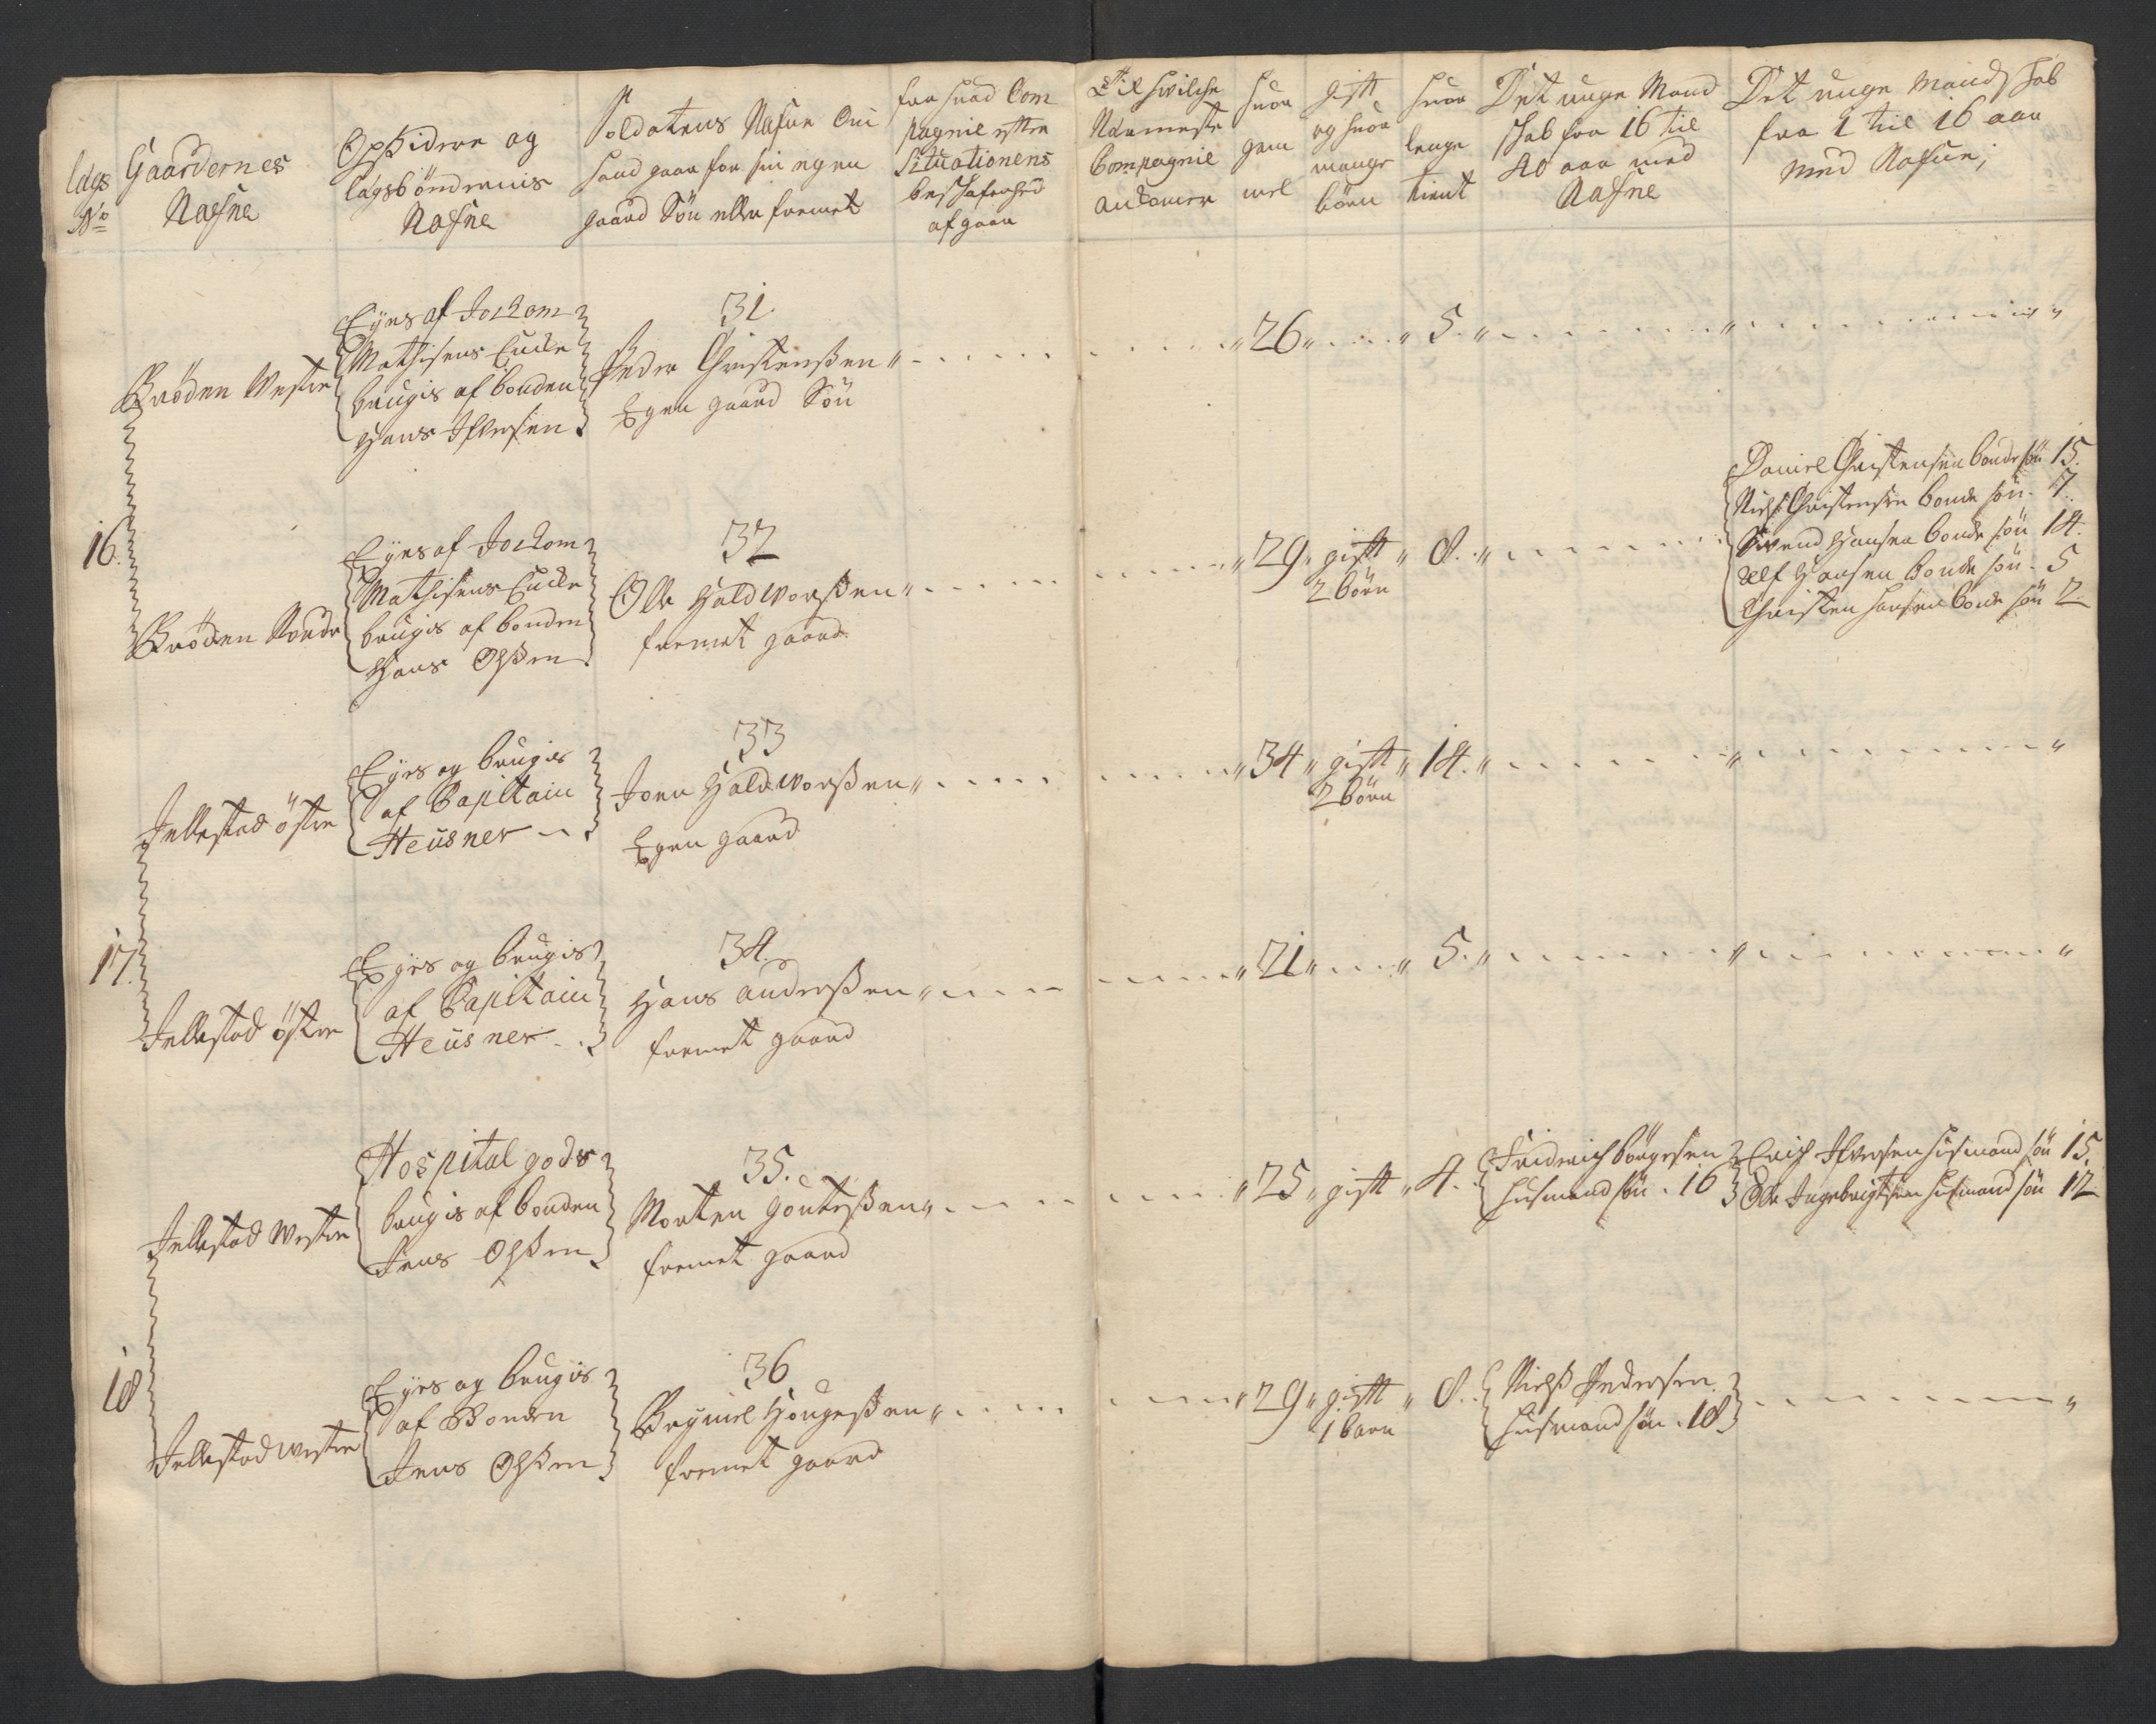 lægs
No
Gaardernes
Nafne
Opsidere og
lægsböndernis
Nafne
Soldatens Nafne Om
hand gaar for sin egen
gaard Sön eller fremet
fra huad Com
pagnie efter
Situationens
beschafenhed
afgaar
Til hvilche
Nærmeste
Compagnie
ankomer
huor
gam
mel
gift
og huor
mange
börn
huor
lenge
tient
Det unge Mand
skab fra 16 til
40 aar med
Nafne
Det unge Mandskab
fra 1 til 16 aar
med Nafne;
16.
Bröden Vestre
Eyes af Jockom
Mathisens Encke
brugis af bonden
Hans Ifversen
31.
Peder Christenßen
Egen gaard Sön
26
5.
Bröden Nordre
Eyes af Jockom
Mathisens Encke
brugis af bonden
Hans Olßen
32
Olle Haldworßen
fremet gaard
29 gift 8.
2 börn
Daniel Christensen bonde sön 15.
Niels Christensen bonde sön. 7.
Svend Hansen bonde sön 14.
Hansen bonde sön. 5
Christen Hansen bonde sön 2.
17.
Jellestad östre
Eyes og brugis
af Capitain
Heusner
33
Joen Haldworßen
Egen gaard
34 gift 14.
2 börn
Jellestad östre
Eyes og brugis
af Capitain
Heusner
34.
Hans Anderßen
fremet gaard
21
5.
18
Jellestad Westre
Hospital gods
brugis af bonden
Jens Olßen
35.
Morten
fremet gaard
25 gift 4.
Fridrich Börgesen
Husmand sön. 16
Erich Ifversen Husmand sön 15.
Ole Ingebrigtsen Husmand sön 12.
Jellestad Westre
Eyes og brugis
af Bonden
Jens Olßen
36
Brynild
fremet gaard
29 gift 8.
1 barn
Nielß Pedersen
Husmand sön. 18.